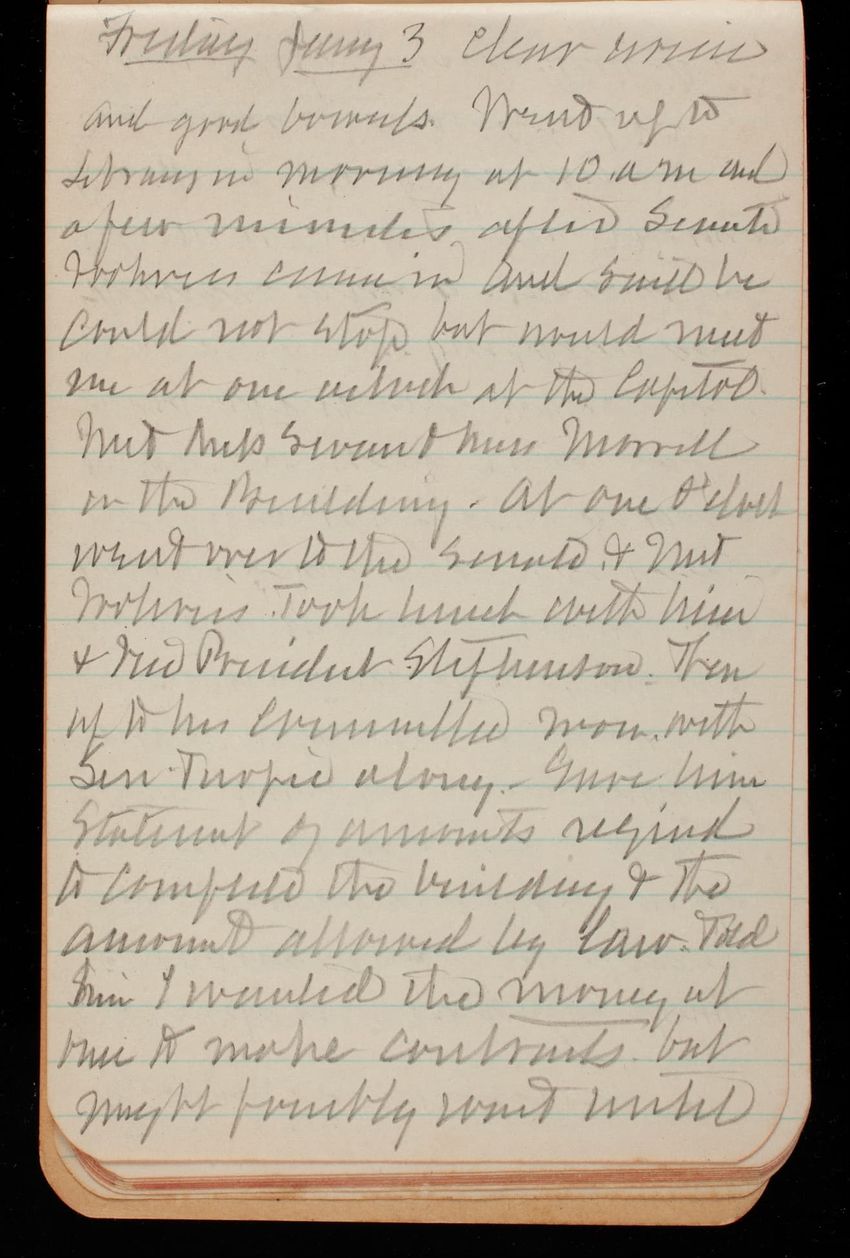 Friday Jany 3 Clear urine
and good bowels. Went up to
Library in morning at 10 a m and
a few minutes after Senator
Voohries came in and said he
could not stop but would meet
me at one oclock at the Capitol.
Met Miss Morrell
in the Building. At one O'clock
went over to the Senate & met
Voohries. Took lunch with him
& Vice President Stephenson. Then
up to his Committee room. with
Sen. along. Gave him
Statement of amounts required
to complete the building & the
amount allowed by law. Told
him I wanted the money at
once to make contracts but
might possibly wait until